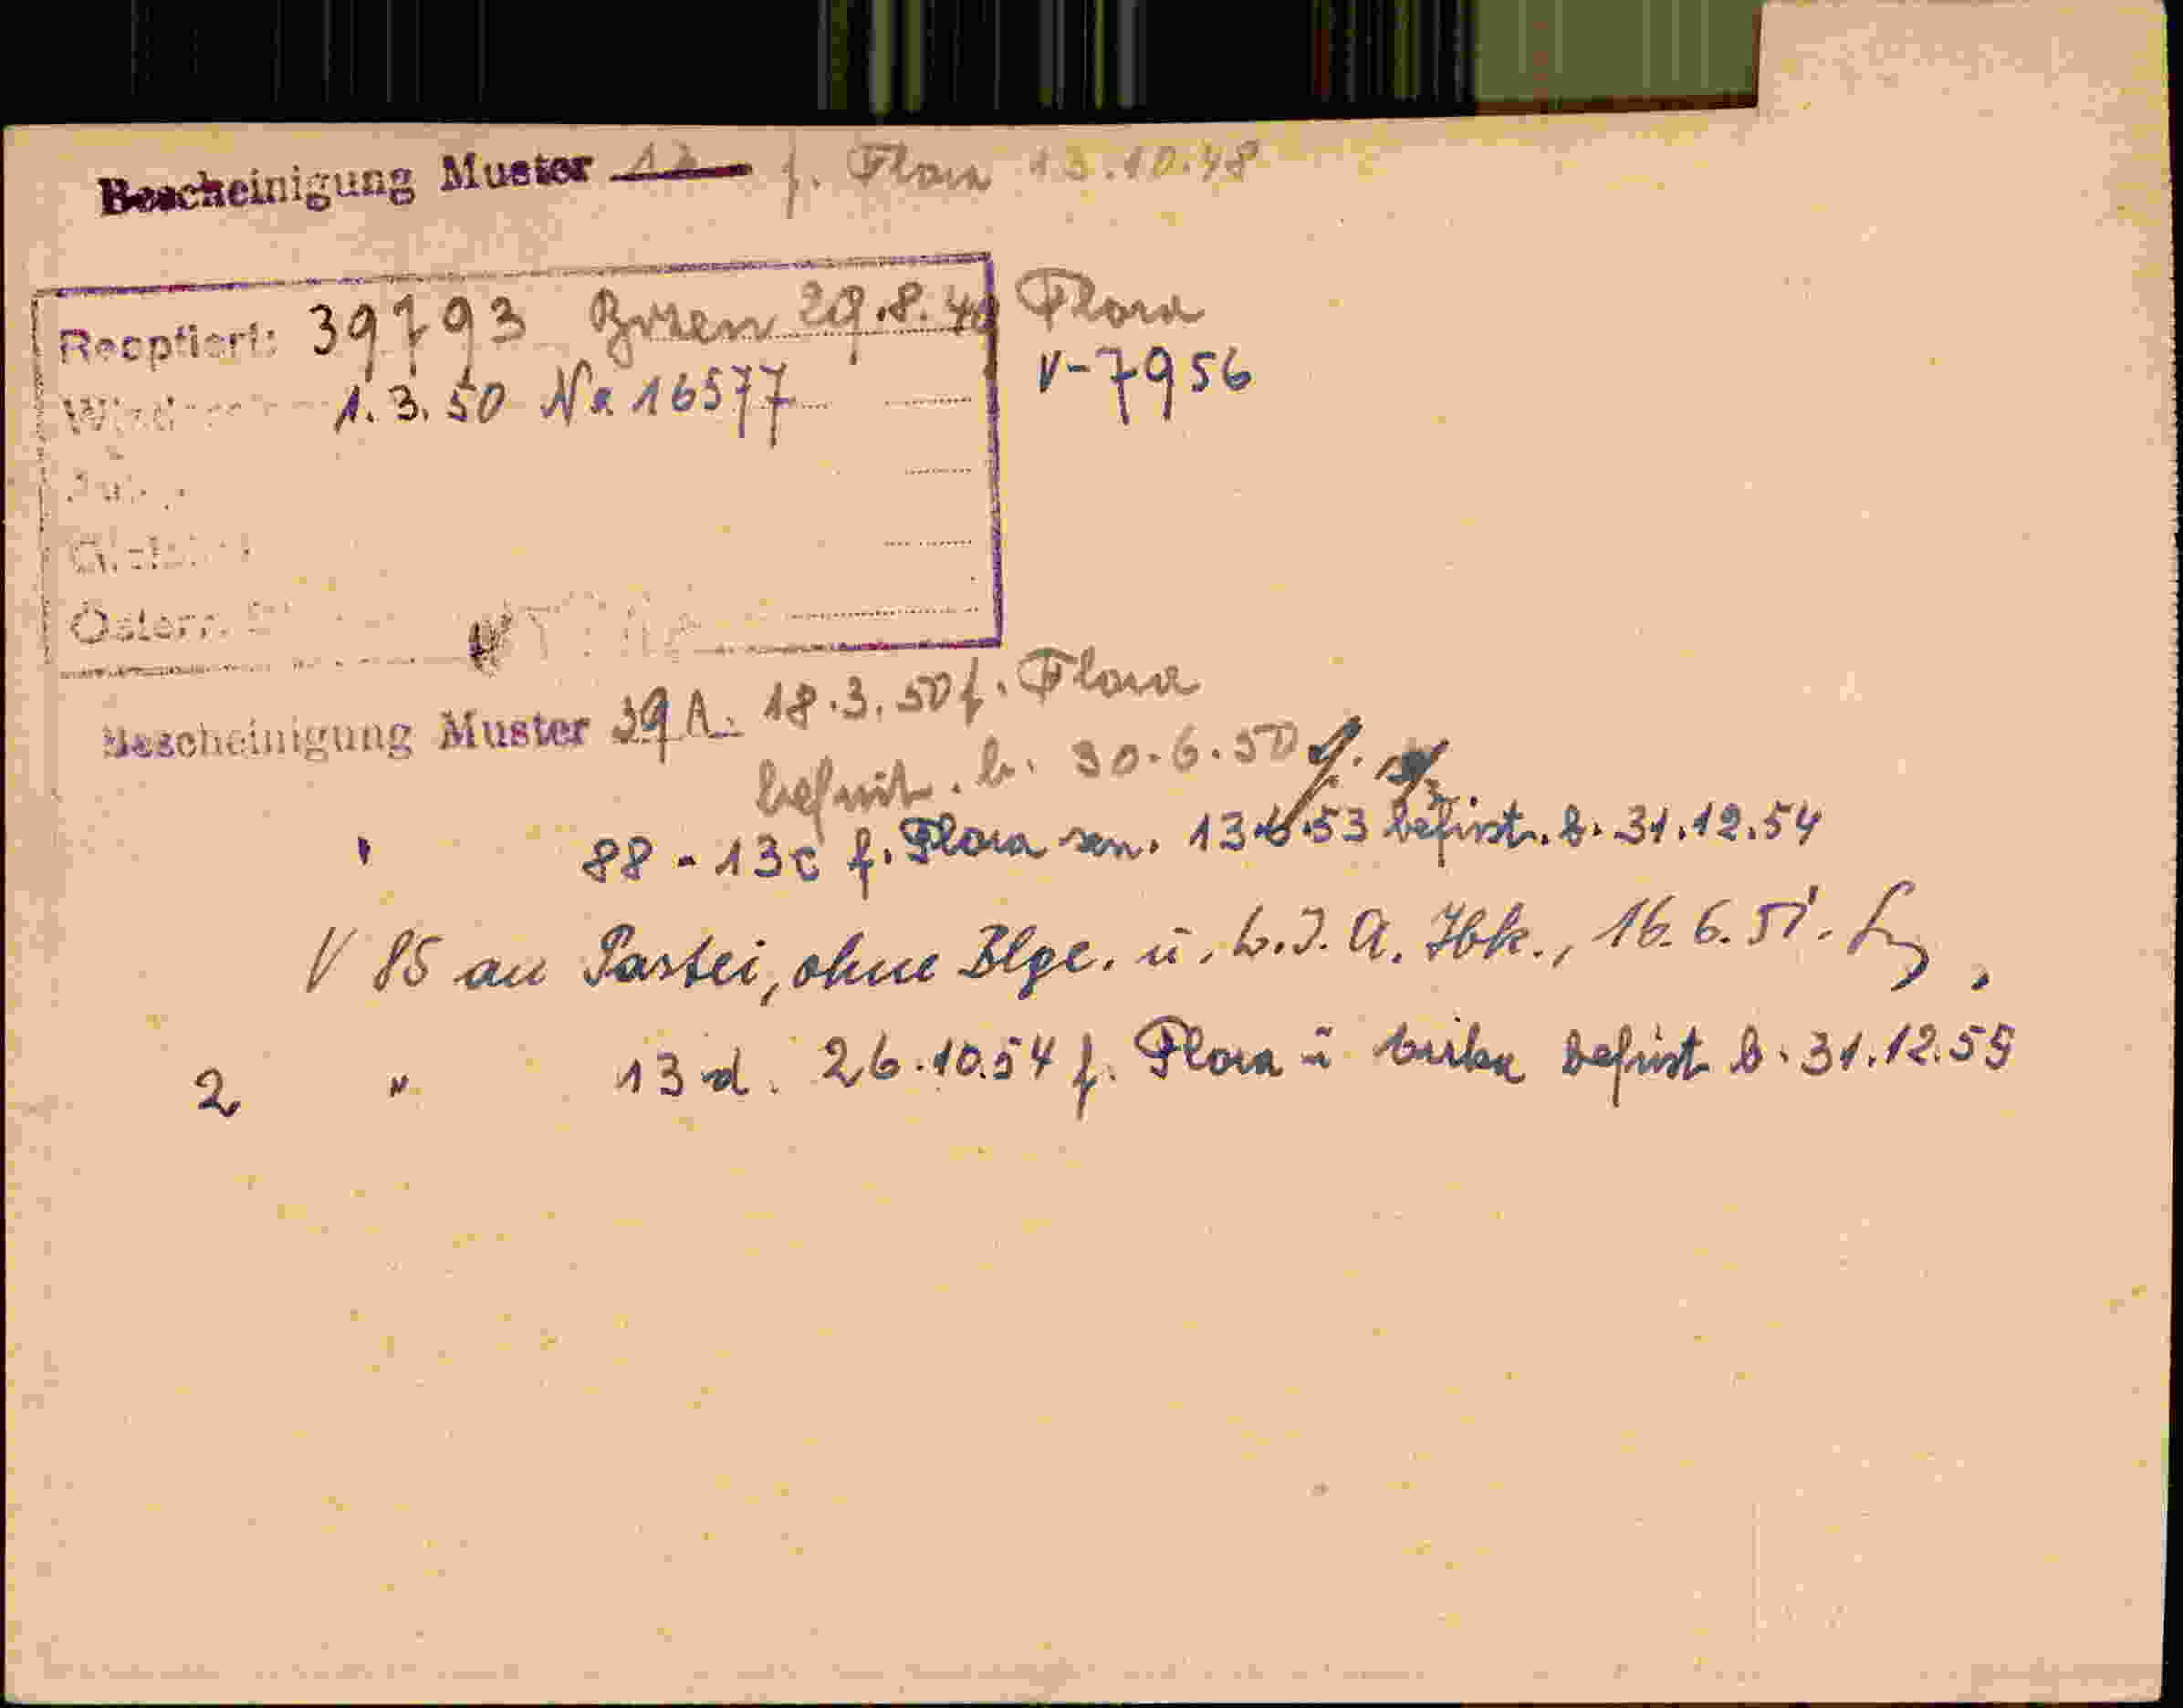 Bescheinigung Muster 12 f. Flora 13.10.48
Reoptiert: 39793 Bozen 29.8.49 Flora
1.3.50 Nr 16577 V-7956
Österr.
Bescheinigung Muster 39A. 18.3.50 f. Flora
befrist. b. 30.6.50
" 88 - 13c f. Flora sen. 13.6.53 befrist. b. 31.12.54
V 85 an Partei, ohne Blge. ü. L.I.A. Ibk., 16.6.51.
2 " 13 d. 26.10.54 f. Flora ü befrist b. 31.12.55